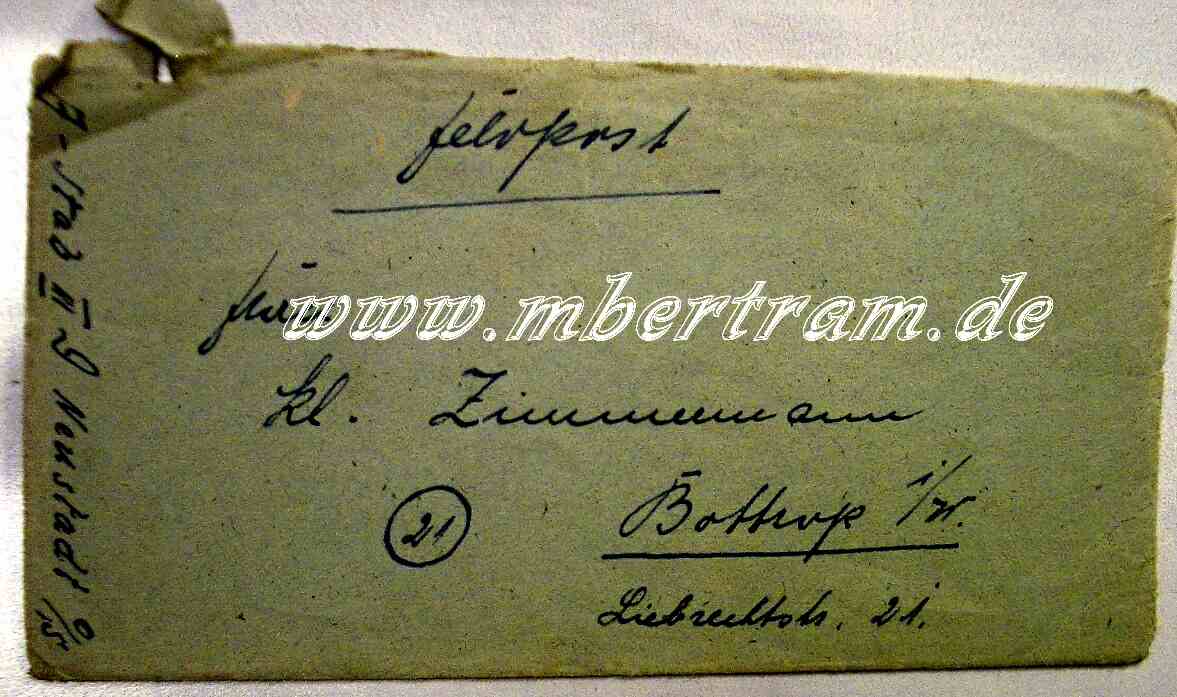 Feldpost
Frau
www.mbertram.de
Kl. Zimmermann
21
Bottrop i/W.
Liebrechtstr. 21.
Neustadt